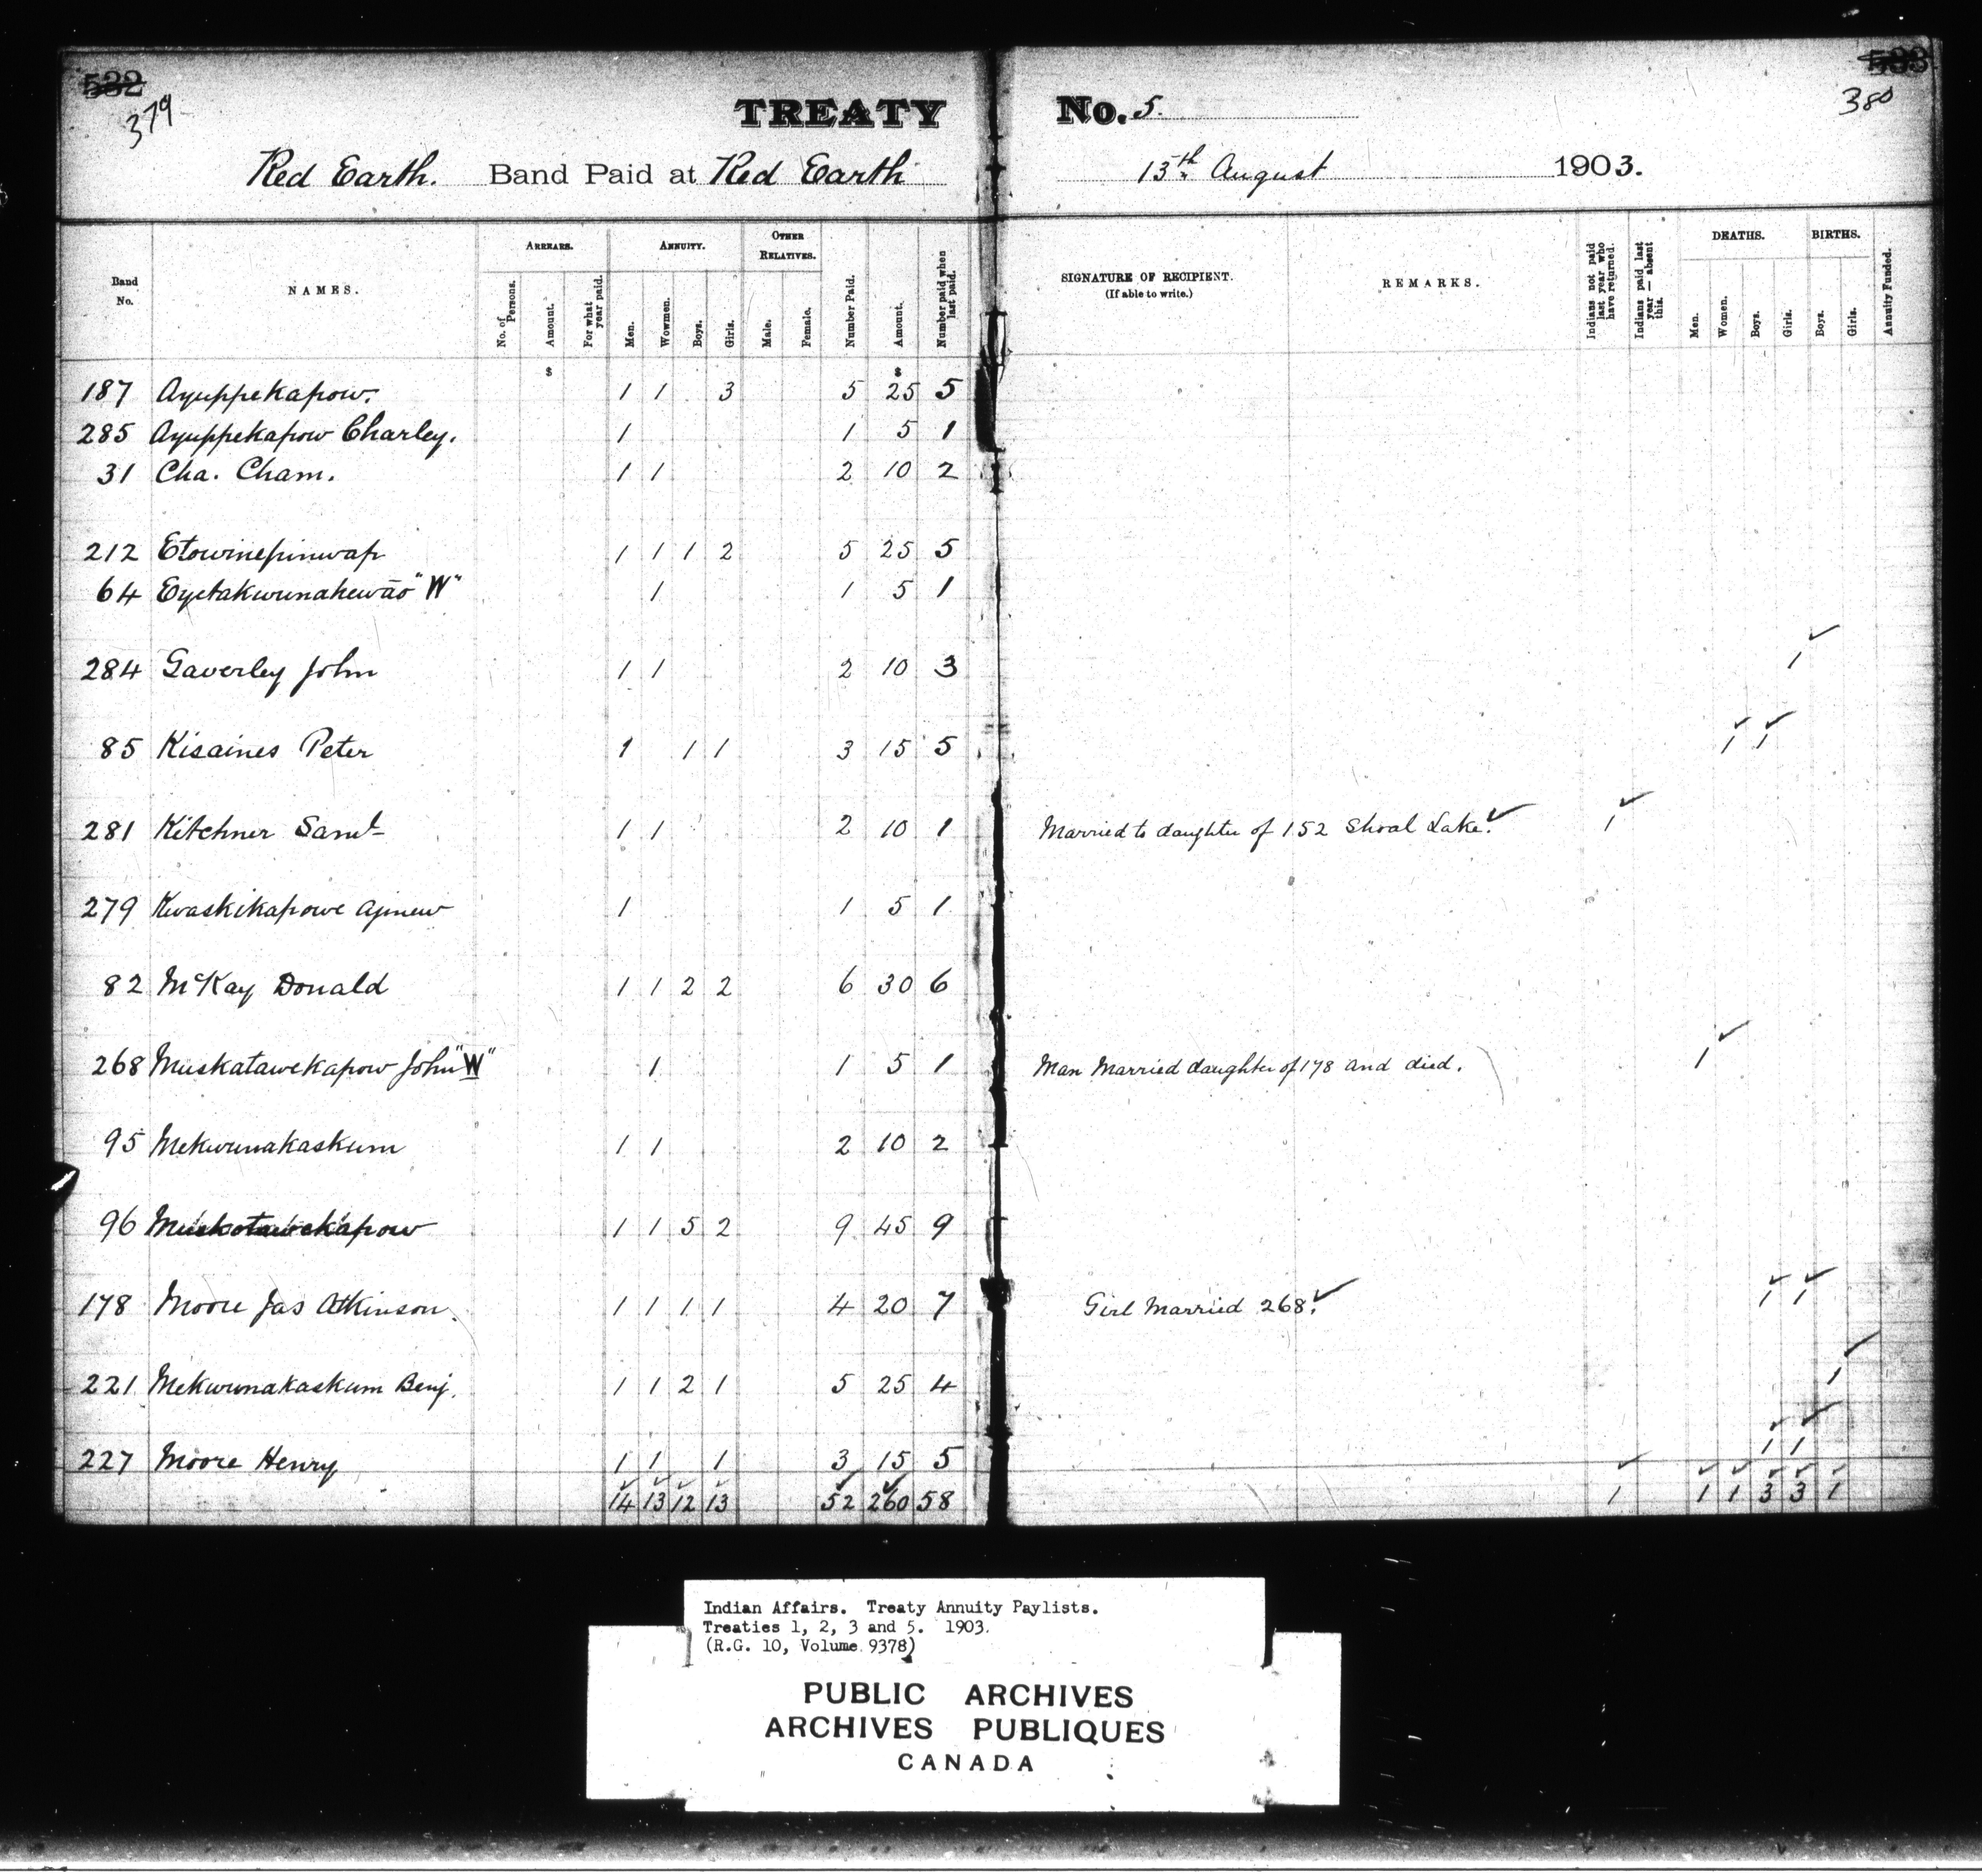 532 533
379 380
TREATY No. 5.
Red Earth. Band Paid at Red Earth 13th August 1903.
Band No. NAMES. ARREARS. No. of Persons. Amount. For what year paid. ANNUITY. Men. Wowmen. Boys. Girls. OTHER RELATIVES. Male. Female. Number Paid. Amount. Number paid when last paid. SIGNATURE OF RECIPIENT. (If able to write.) REMARKS. Indians not paid last year who have returned. Indians paid last year — absent this. DEATHS. Men. Women. Boys. Girls. BIRTHS. Boys. Girls. Annuity Funded.
$ $
187 Ayuppekapow. 1 1 3 5 25 5
285 Ayuppekapow Charley. 1 1 5 1
31 Cha. Cham. 1 1 2 10 2
212 Etowinepinwap 1 1 1 2 5 25 5
64 Eyetakwunahewāo "W" 1 1 5 1
284 Gaverley John 1 1 2 10 3 1
85 Kisaines Peter 1 1 1 3 15 5 1 1
281 Kitchner Saml 1 1 2 10 1 Married to daughter of 152 Shoal Lake. 1
279 Kwaskikapowe Ajinew 1 1 5 1
82 McKay Donald 1 1 2 2 6 30 6
268 Muskatawekapow John "W" 1 1 5 1 Man Married daughter of 178 and died. 1
95 Mekwunakaskum 1 1 2 10 2
96 Muskotawekapow 1 1 5 2 9 45 9
178 Moore Jas Atkinson. 1 1 1 1 4 20 7 Girl Married 268. 1 1
221 Mekwunakaskum Benj. 1 1 2 1 5 25 4 1
227 Moore Henry 1 1 1 3 15 5 1 1
14 13 12 13 52 260 58 1 1 1 3 3 1
Indian Affairs. Treaty Annuity Paylists.
Treaties 1, 2, 3 and 5. 1903.
(R.G. 10, Volume 9378)
PUBLIC ARCHIVES
ARCHIVES PUBLIQUES
CANADA